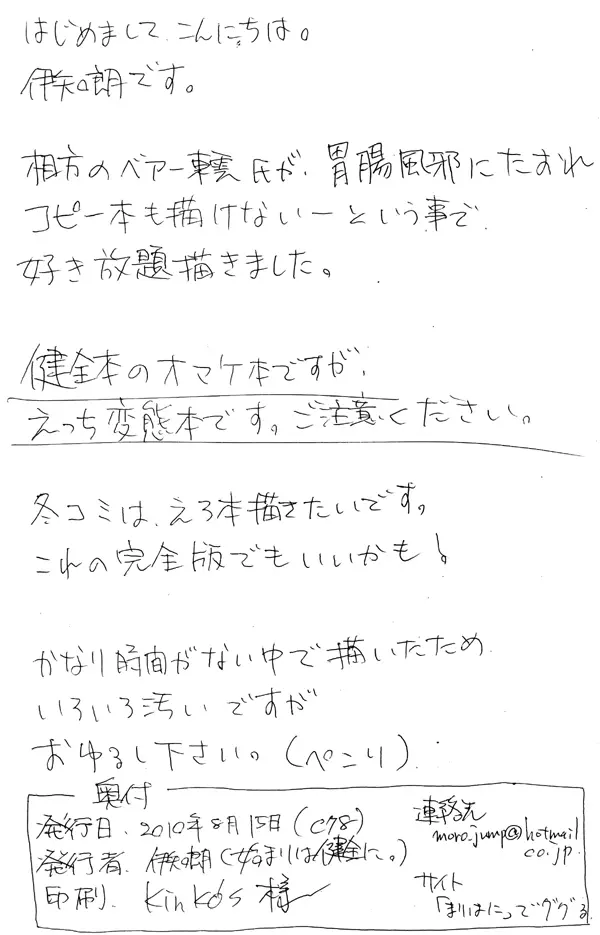 はじめまして、こんにちは。
伊知朗です。
相方のベアー轟氏が、胃腸風邪にたおれ
コピー本も描けないーという事で
好き放題描きました。
健全本のオマケ本ですが、
えっち変態本です。ご注意ください。
冬コミは、えろ本描きたいです。
これの完全版でもいいかも!
かなり時間がない中で描いたため
いろいろ汚いですが
おゆるし下さい。(ぺこり)
奥付
発行日、2010年8月15日(C78)
発行者、伊知朗(始まりは健全に。)
印刷、Kinko's 様
連絡先
moro.jump@hotmail
co.jp
サイト
「まりはに」でググる